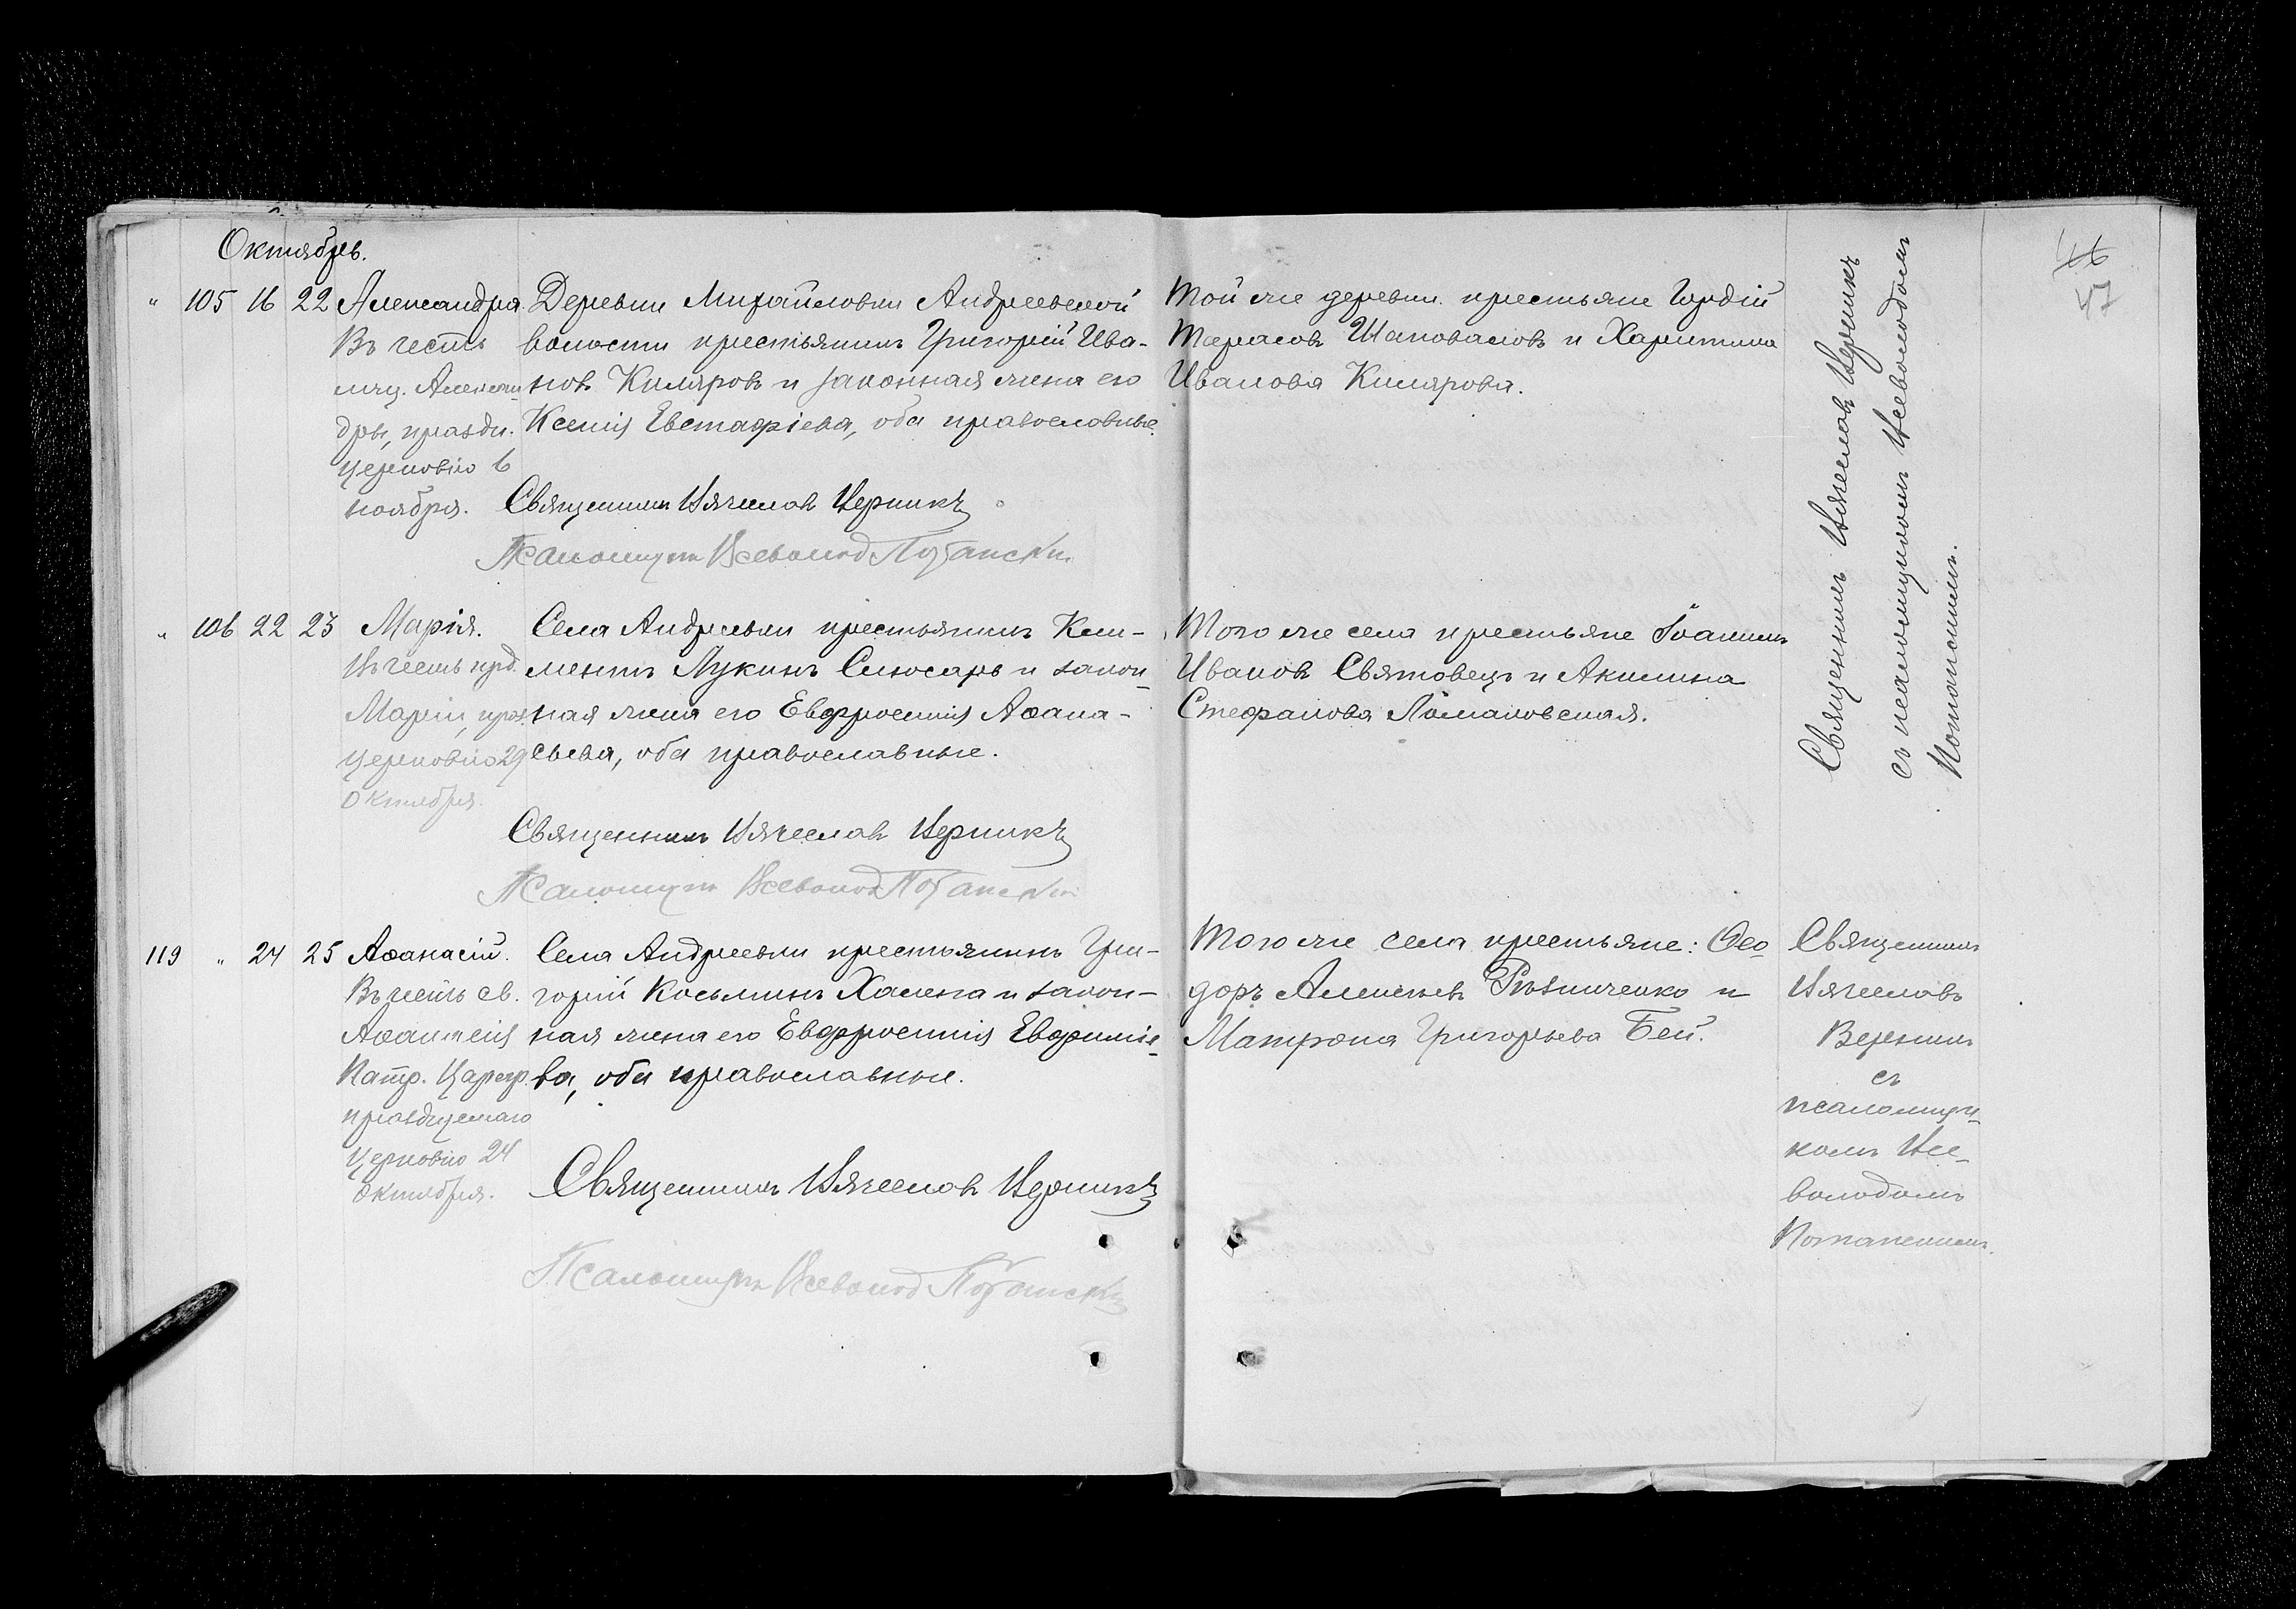 Октябрь.
46
47
" 105 16 22 Александра.
Въ честь
мчц. Алексан-
дры, праздн.
церковію 6
ноября.
Деревни Михайловки Андреевской
волости крестьянинъ Григорій Ива-
новъ Киляровъ и законная жена его
Ксенія Евстафіева, оба православные.
Священникъ Вячеславъ Верникъ
Псаломщикъ Всеволод Потапскій
Той же деревни крестьяне Гордій
Тарасовъ Шаповаловъ и Харитина
Иванова Килярова.
Священникъ Вячеславъ Верникъ
съ псаломщикомъ Всеволодомъ
Потапскимъ.
" 106 22 23 Марія.
Въ честь прд.
Маріи, праз.
церковію 29
Октября.
Села Андреевки крестьянинъ Кли-
ментъ Лукинъ Слюсарь и закон-
ная жена его Евфросинія Аѳана-
сьева, оба православные.
Священникъ Вячеславъ Верникъ
Псаломщикъ Всеволод Потапскій
Того же села крестьяне Іоаннъ
Ивановъ Святовецъ и Акилина
Стефанова Ломановская.
119 " 24 25 Аѳанасій.
Въ честь св.
Аѳанасія
Патр. Царегр.
празднуемаго
церковію 24
Октября.
Села Андреевки крестьянинъ Гри-
горій Косьминъ Халепа и закон-
ная жена его Евфросинія Евфиміе-
ва, оба православные.
Священникъ Вячеславъ Верникъ
Псаломщикъ Всеволод Потапскій
Того же села крестьяне: Ѳео-
доръ Алексѣевъ Рѣзниченко и
Матрона Григорьева Бей.
Священникъ
Вячеславъ
Верникъ
съ
псаломщи-
комъ Все-
володомъ
Потапскимъ.